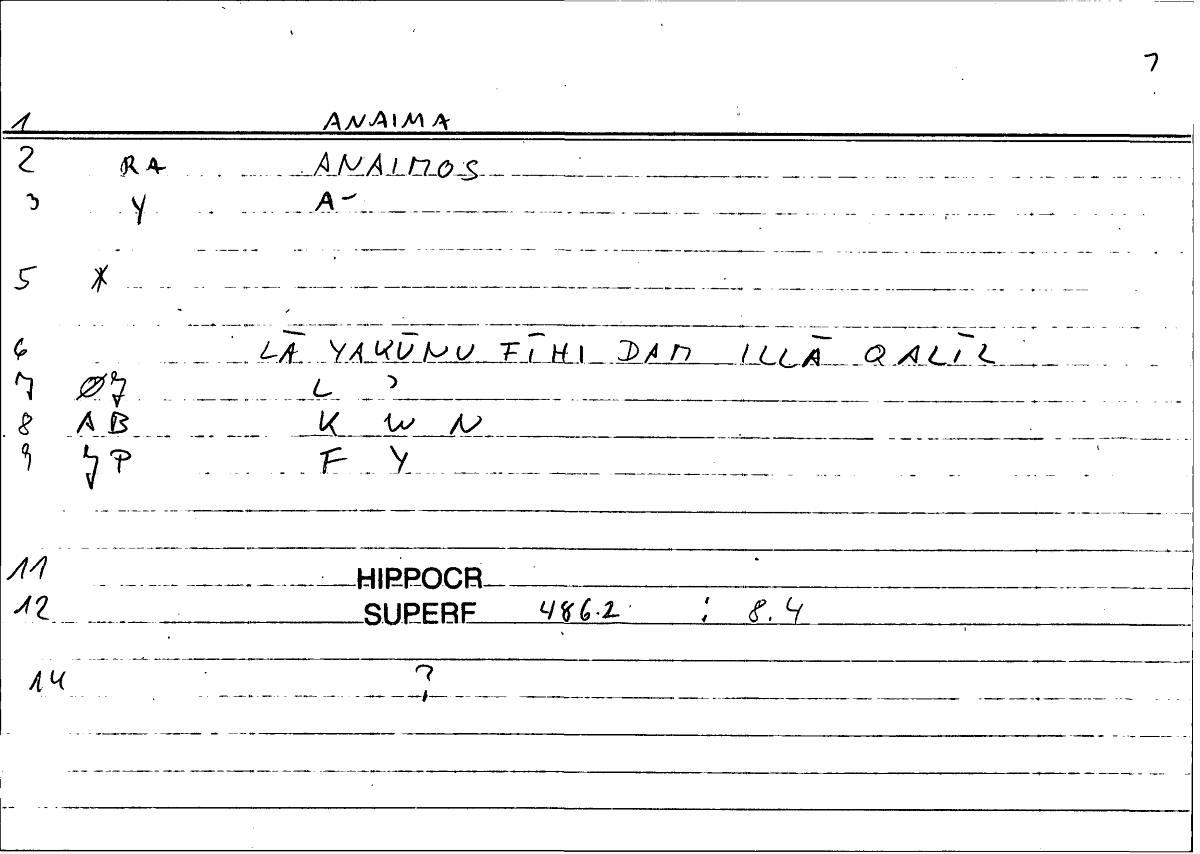 7
1 ANAIMA
2 RA ANAIMOS
3 Y A-
5 *
6 LĀ YAKŪNU FĪHI DAM ILLĀ QALĪL
7 L ʾ
8 AB K W N
9 P F Y
11 HIPPOCR
12 SUPERF 486.2 ; 8.4
14 ?